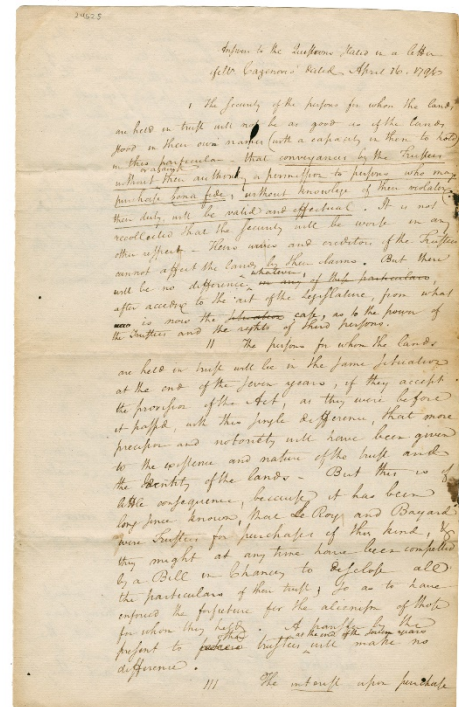 Answer to the Questions stated in a letter
of Mr Cazenove dated April 26. 1796
1 The security of the persons for whom the lands
are held in trust will not be as good as if the lands
stood in their own names (with a capacity in them to hold)
in this particular - that conveyances by the Trustees
without their authority or against a permission to persons who may
purchase bona fide, without knowledge of their violating
their duty, will be valid and effectual. It is not
recollected that the security will be worse in any
other respect - Heirs and creditors of the Trustees
cannot affect the lands by their claims. But there
will be no difference whatever, in any of these particulars,
after acceding to the act of the Legislature, from what
is now the situation case, as to the power of
the Trustees and the rights of third persons.
II The persons for whom the lands
are held in trust will be in the same situation
at the end of the seven years, if they accept
the provision of the Act, as they were before
it passed, with this single difference, that more
precision and notoriety will have been given
to the existence and nature of the trust and
the Identity of the lands - But this is of
little consequence, because it has been
long since known that Le Roy and Bayard
were Trustees for purchases of this kind, &
they might at any time have been compelled
by a Bill in Chancery to disclose all
the particulars of their trust, so as to have
enforced the forfeiture for the alienism of those
for whom they held. A transfer by the
present to third trustees at the end of the seven years will make no
difference.
III The interest upon purchase